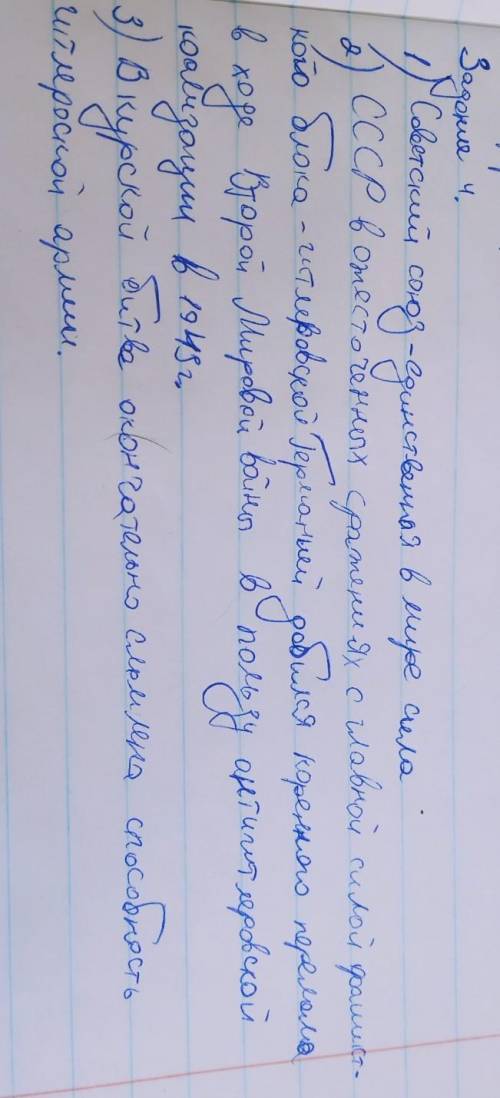 Задание 4.
1) Советский союз - единственная в мире сила
2) СССР в ожесточенных сражениях с главной силой фашист-
кого блока - гитлеровской Германией добился коренного перелома
в ходе Второй Мировой войны в пользу антигитлеровской
коализации в 1943г.
3) В курской битве окончательно сломлена способность
гитлероской армии.